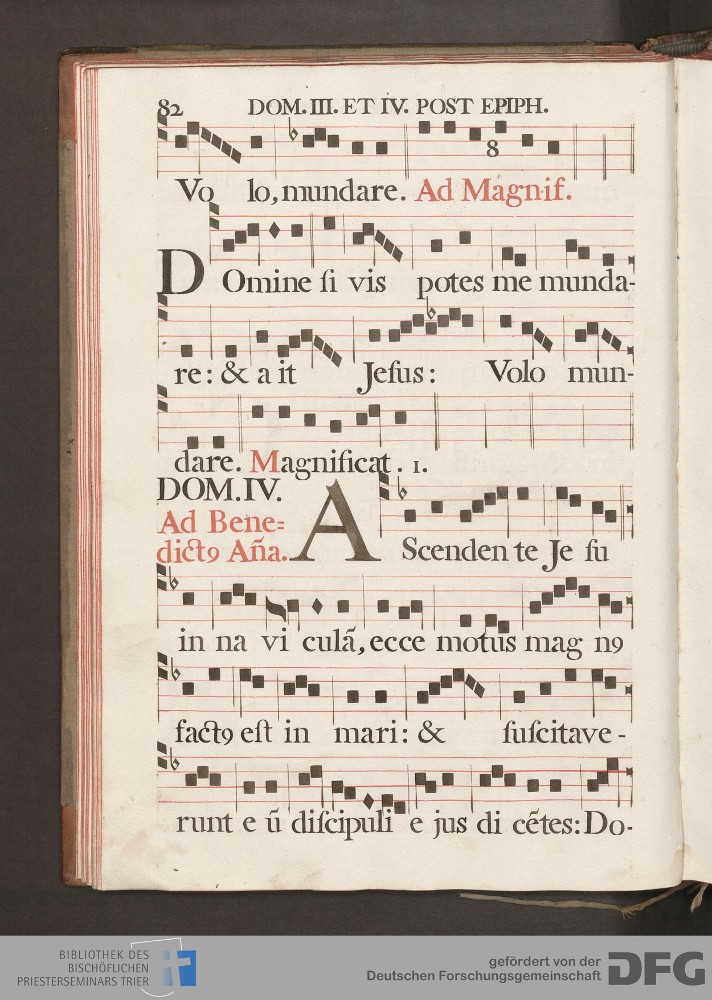 82 DOM. III. ET IV. POST EPIPH.
8
Vo lo, mundare. Ad Magnif.
DOmine ſi vis potes me munda-
re: & a it Jeſus: Volo mun-
dare. Magnificat. 1.
DOM. IV.
Ad Bene=
dictꝯ Añа.
AScenden te Je ſu
in na vi culā, ecce motus mag nꝯ
factꝯ eſt in mari: & ſuſcitave-
runt e ū diſcipuli e jus di cētes: Do-
BIBLIOTHEK DES
BISCHÖFLICHEN
PRIESTERSEMINARS TRIER
gefördert von der
Deutschen Forschungsgemeinschaft
DFG